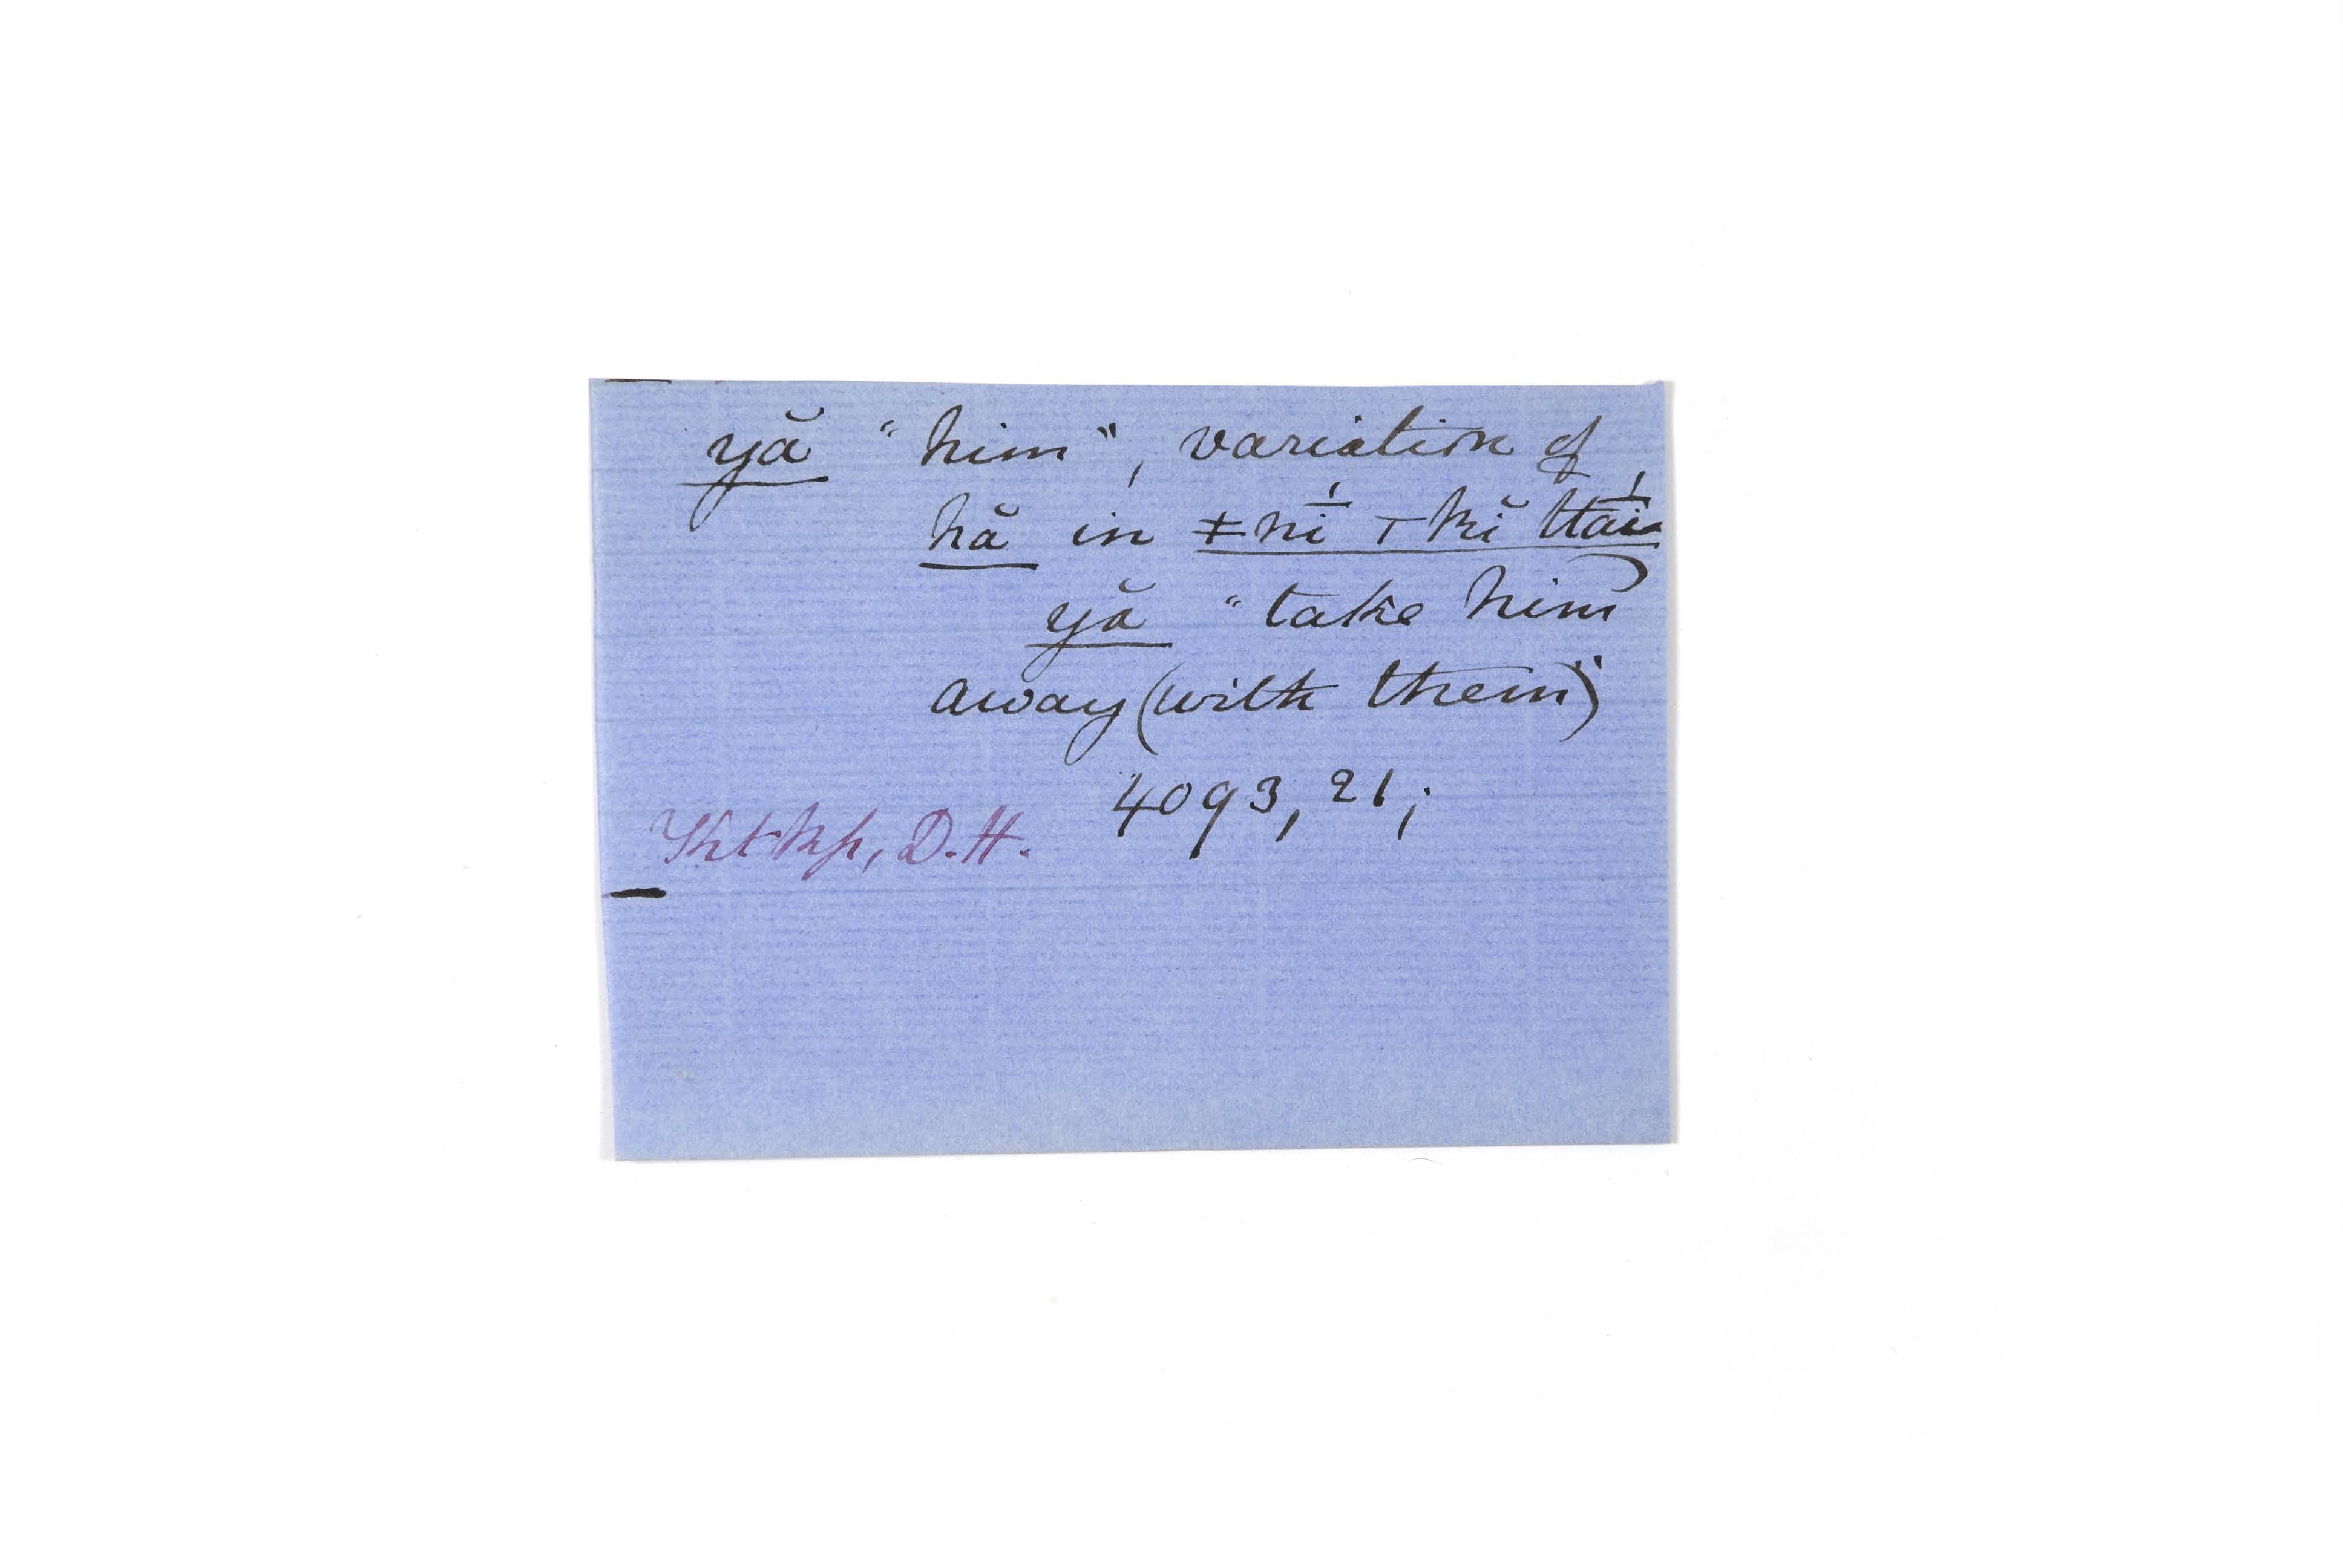 yă "him", variation of
hă in ǂnī́ ⊤kĭ ttaī́
yă "take him
away (with them)"
4093, 21;
D.H.